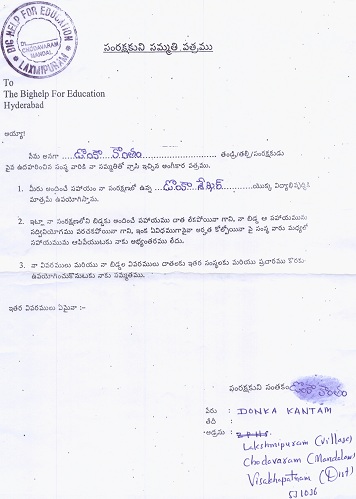 BIG HELP FOR EDUCATION
CHODAVARAM
MANDAL
LAXMIPURAM
సంరక్షకుని సమ్మతి పత్రము
To
The Bighelp For Education
Hyderabad
అయ్యా!
నేను అనగా ..... డొంకా కాంతం ..... తండ్రి/తల్లి/సంరక్షకుడు
పైన ఉదహరించిన సంస్థ వారికి నా సమ్మతితో వ్రాసి ఇచ్చిన అంగీకార పత్రము.
1. మీరు అందించే సహాయం నా సంరక్షణలో ఉన్న ..... డొంకా శేఖర్ ..... యొక్క విద్యాభివృద్ధికి
మాత్రమే ఉపయోగిస్తాను.
2. ఇట్లా నా సంరక్షణలోని బిడ్డకు అందించే సహాయము దాత లేకపోయినా గాని, నా బిడ్డ ఆ సహాయమును
సద్వినియోగము పరచకపోయినా గాని, ఇంక ఏవిధముగానైనా అర్హత కోల్పోయినా పై సంస్థ వారు మధ్యలో
సహాయమును ఆపివేయుటకు నాకు అభ్యంతరము లేదు.
3. నా వివరములు మరియు నా బిడ్డల వివరములు దాతలకు ఇతర సంస్థలకు మరియు ప్రచారము కొరకు
ఉపయోగించుకొనుటకు నాకు సమ్మతము.
ఇతర వివరములు ఏమైనా :-
సంరక్షకుని సంతకం డొంకా కాంతం
పేరు : DONKA KANTAM
తేదీ :
అడ్రసు :
Lakshmipuram (Village)
Chodavaram (Mandalam)
Visakhapatnam (Dist)
531036